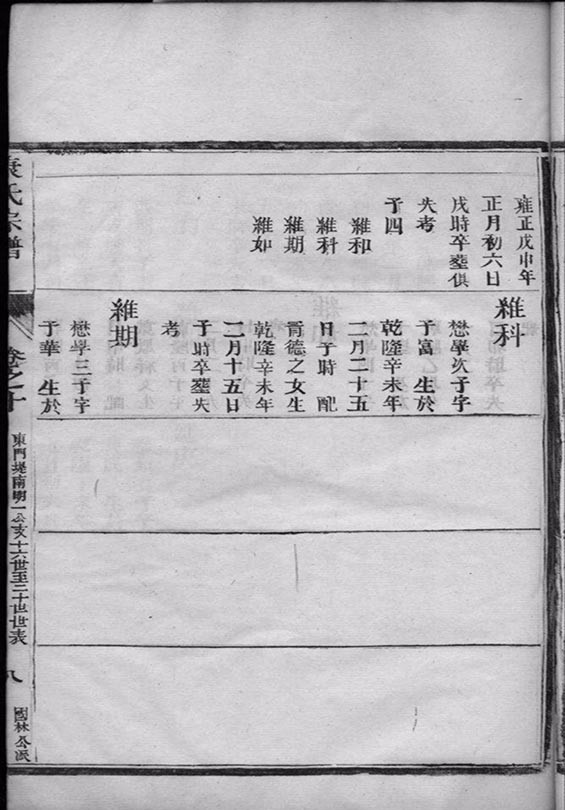 雍正戊申年
正月初六日
戌時卒塟俱
失考
子四
維和
維科
維期
維如
維科
懋學次子字
子富 生於
乾隆辛未年
二月二十五
日子時 配
胥德之女生
乾隆辛未年
二月十五日
子時卒塟失
考
維期
懋學三子字
子華 生於
氏宗譜
卷之十
東門堤南明一公亥十六世至二十世世表
八
國林公派